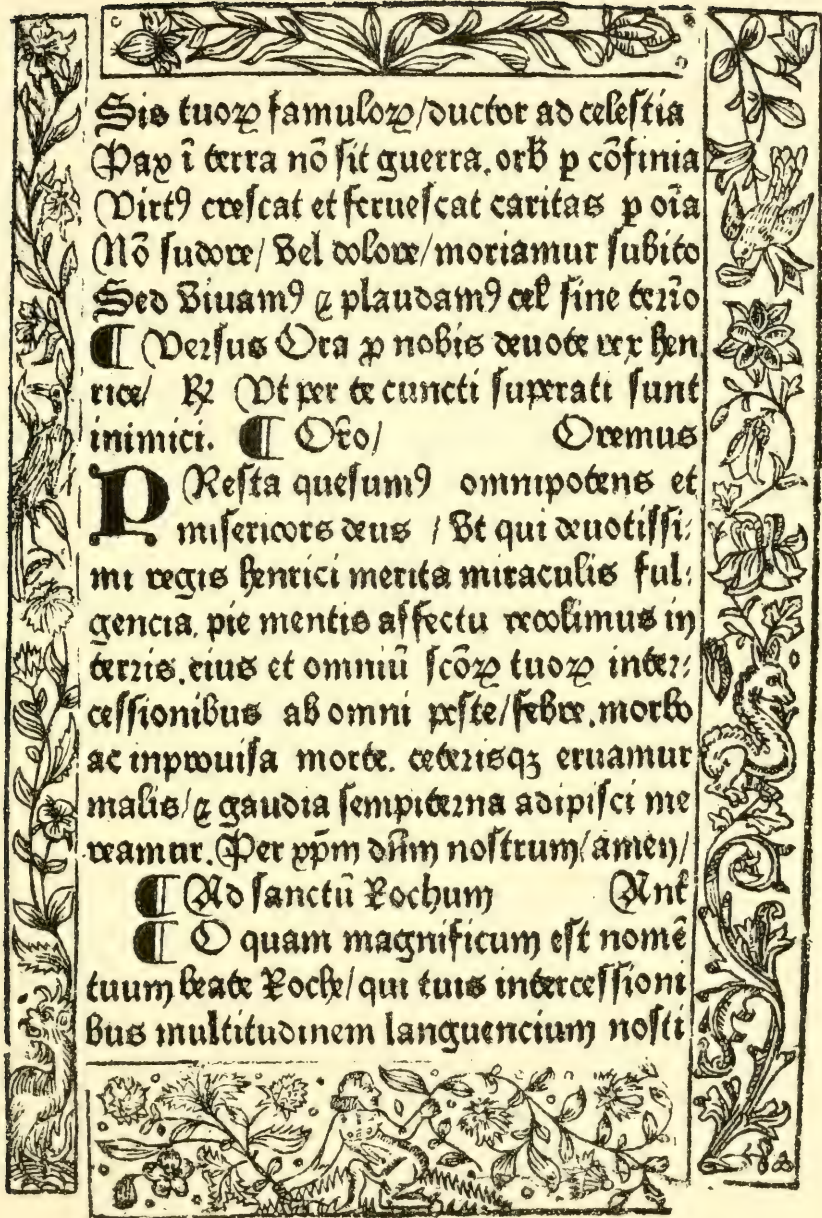 Sis tuoꝝ famuloꝝ/ductor ad celestia
Pax ī terra nō sit guerra.orbꝭ p cōfinia
Virtꝰ crescat et feruescat caritas p oīa
Nō sudore/vel dolore/moriamur subito
Sed viuamꝰ ⁊ plaudamꝰ celꝭ sine termīo
¶ Versus Ora ꝓ nobis deuote rex hen
rice/ ℟ Vt per te cuncti superati sunt
inimici. ¶ Orō/ Oremus
PResta quesumꝰ omnipotens et
misericors deus / vt qui deuotissi:
mi regis henrici merita miraculis ful:
gencia. pie mentis affectu recolimus in
terris.eius et omniū scōꝝ tuoꝝ inter:
cessionibus ab omni peste/febre.morbo
ac inprouisa morte. ceterisqꝫ eruamur
malis/⁊ gaudia sempiterna adipisci me
reamur. Per xp̄m dn̄m nostrum/amen/
¶ Ad sanctū Rochum Anꝭ
¶ O quam magnificum est nomē
tuum beate Roche/qui tuis intercessioni
bus multitudinem languencium nosti